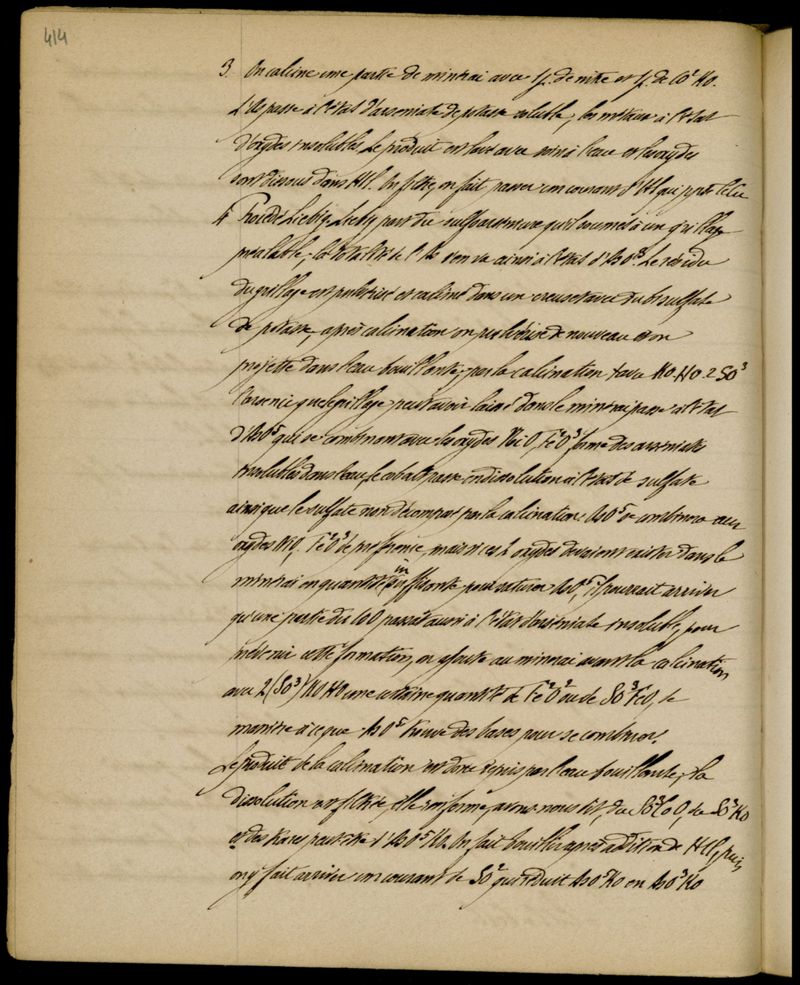 414
3. On calcine une partie de minerai avec 1 p. de nitre et 1 p. de Co² Ko.
L'As passe à l'état d'arséniate de potasse soluble, les métaux à l'état
d'oxydes insolubles. Le produit est lavé avec soin à l'eau et les oxydes
sont dissous dans HCl. On filtre, on fait passer un courant d'HS qui ppte le Cu
4. Procédé Liebig. Liebig part du sulfoarséniure qu'il soumet à un grillage
préalable, la totalité de l'As s'en va ainsi à l'état d'AsO³. Le résidu
du grillage est pulvérisé et calciné dans un creuset avec du bisulfate
de potasse, après calcination on pulvérise de nouveau et on
projette dans l'eau bouillante, par la calcination avec KO. HO. 2 SO³
l'arsenic que le grillage peut avoir laissé dans le minerai passe à l'état
d'AsO⁵ qui se combinant avec les oxydes NiO, Fe²O³ forme des arséniates
insolubles dans l'eau, le cobalt passe en dissolution à l'état de sulfate
ainsi que le sulfate non décomposé par la calcination. AsO⁵ se combinera aux
oxydes NiO, Fe²O³ de préférence, mais si ces 2 oxydes devaient exister dans le
minerai en quantité insuffisante pour saturer AsO⁵, il pourrait arriver
qu'une partie du CoO passât aussi à l'état d'arséniate insoluble, pour
prévenir cette formation, on ajoute au minerai avant la calcination
avec 2(SO³) KO HO une certaine quantité de Fe²O² ou de SO³FeO, de
manière à ce que AsO⁵ trouve des bases pour se combiner.
Le produit de la calcination est donc repris par l'eau bouillante, la
dissolution est filtrée, elle renferme, avons nous dit, du SO³CoO, du SO³KO
et des traces peut être d'AsO⁵KO. On fait bouillir après addition de HCl, puis
on y fait arriver un courant de SO² qui réduit AsO⁵KO en AsO³KO